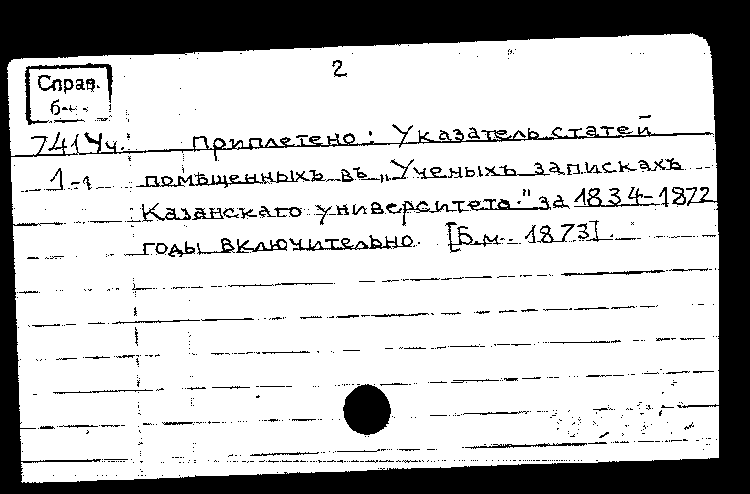 2
Справ.
б-
741 Уч. Приплетено: Указатель статей
1-я помѣщенныхъ въ „Ученыхъ запискахъ
Казанскаго университета." за 1834-1872
годы включительно. [Б.м.. 1873].